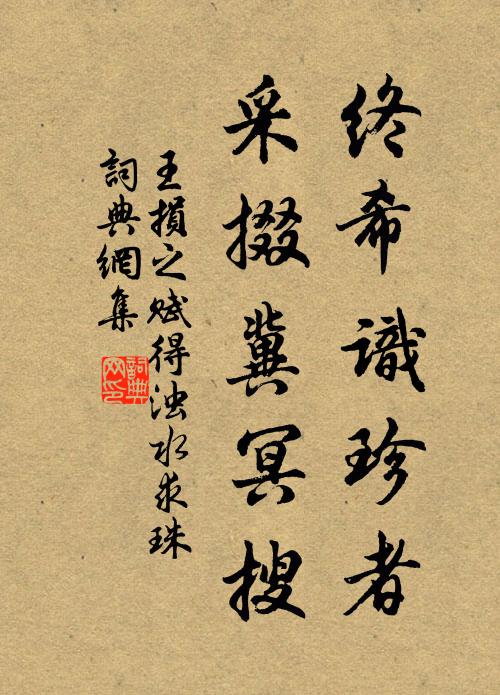 终希識珍者
采掇冀冥搜
王損之赋得浊水求珠
詞典網集
詞典
网印